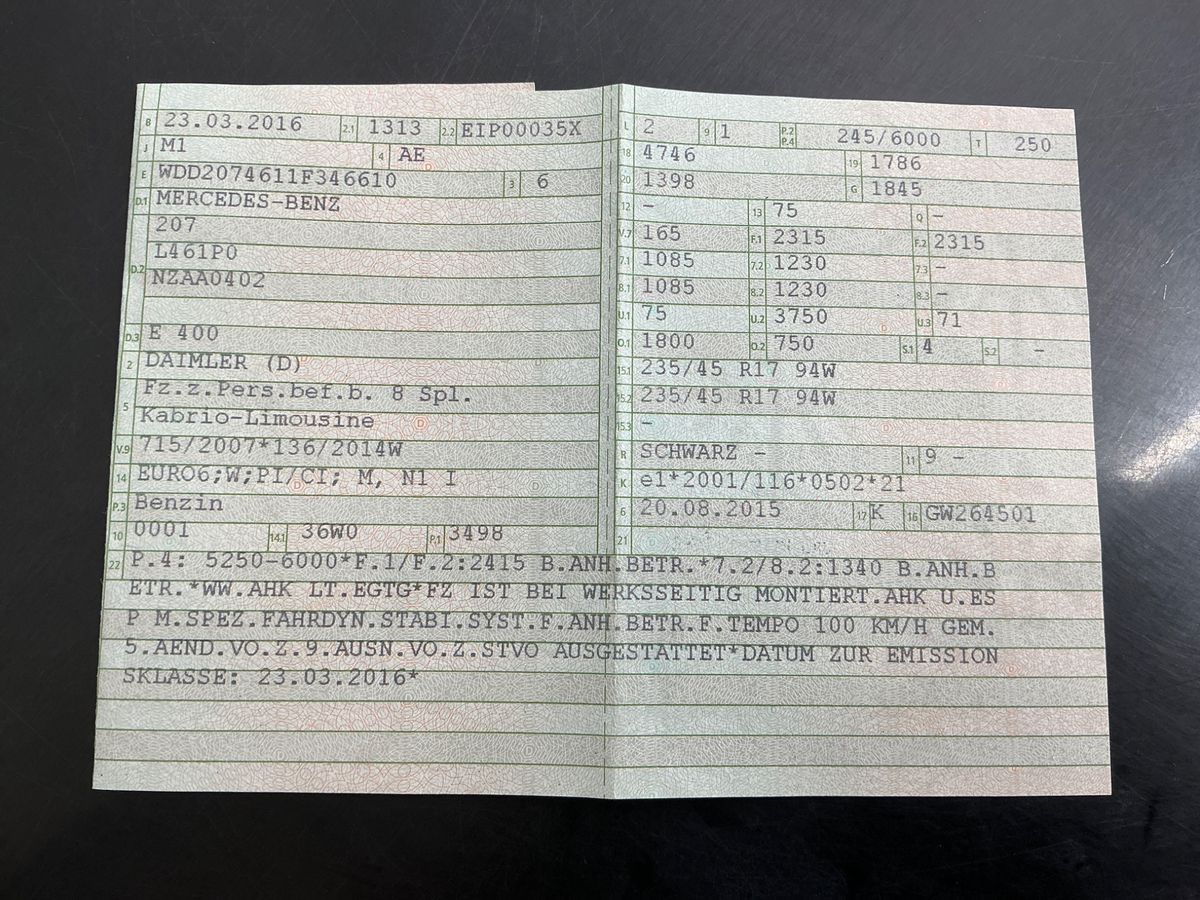 B 23.03.2016 2.1 1313 2.2 EIP00035X
J M1 4 AE
E WDD2074611F346610 3 6
D.1 MERCEDES-BENZ
207
D.2 L461P0
NZAA0402
D.3 E 400
2 DAIMLER (D)
5 Fz.z.Pers.bef.b. 8 Spl.
Kabrio-Limousine
V.9 715/2007*136/2014W
14 EURO6;W;PI/CI; M, N1 I
P.3 Benzin
10 0001 14.1 36W0 P.1 3498
L 2 9 1 P.2 P.4 245/6000 T 250
18 4746 19 1786
20 1398 G 1845
12 – 13 75 Q –
V.7 165 F.1 2315 F.2 2315
7.1 1085 7.2 1230 7.3 –
8.1 1085 8.2 1230 8.3 –
U.1 75 U.2 3750 U.3 71
O.1 1800 O.2 750 S.1 4 S.2 –
15.1 235/45 R17 94W
15.2 235/45 R17 94W
15.3 –
R SCHWARZ – 11 9 –
K e1*2001/116*0502*21
6 20.08.2015 17 K 16 GW264501
21
22 P.4: 5250-6000*F.1/F.2:2415 B.ANH.BETR.*7.2/8.2:1340 B.ANH.B
ETR.*WW.AHK LT.EGTG*FZ IST BEI WERKSSEITIG MONTIERT.AHK U.ES
P M.SPEZ.FAHRDYN.STABI.SYST.F.ANH.BETR.F.TEMPO 100 KM/H GEM.
5.AEND.VO.Z.9.AUSN.VO.Z.STVO AUSGESTATTET*DATUM ZUR EMISSION
SKLASSE: 23.03.2016*